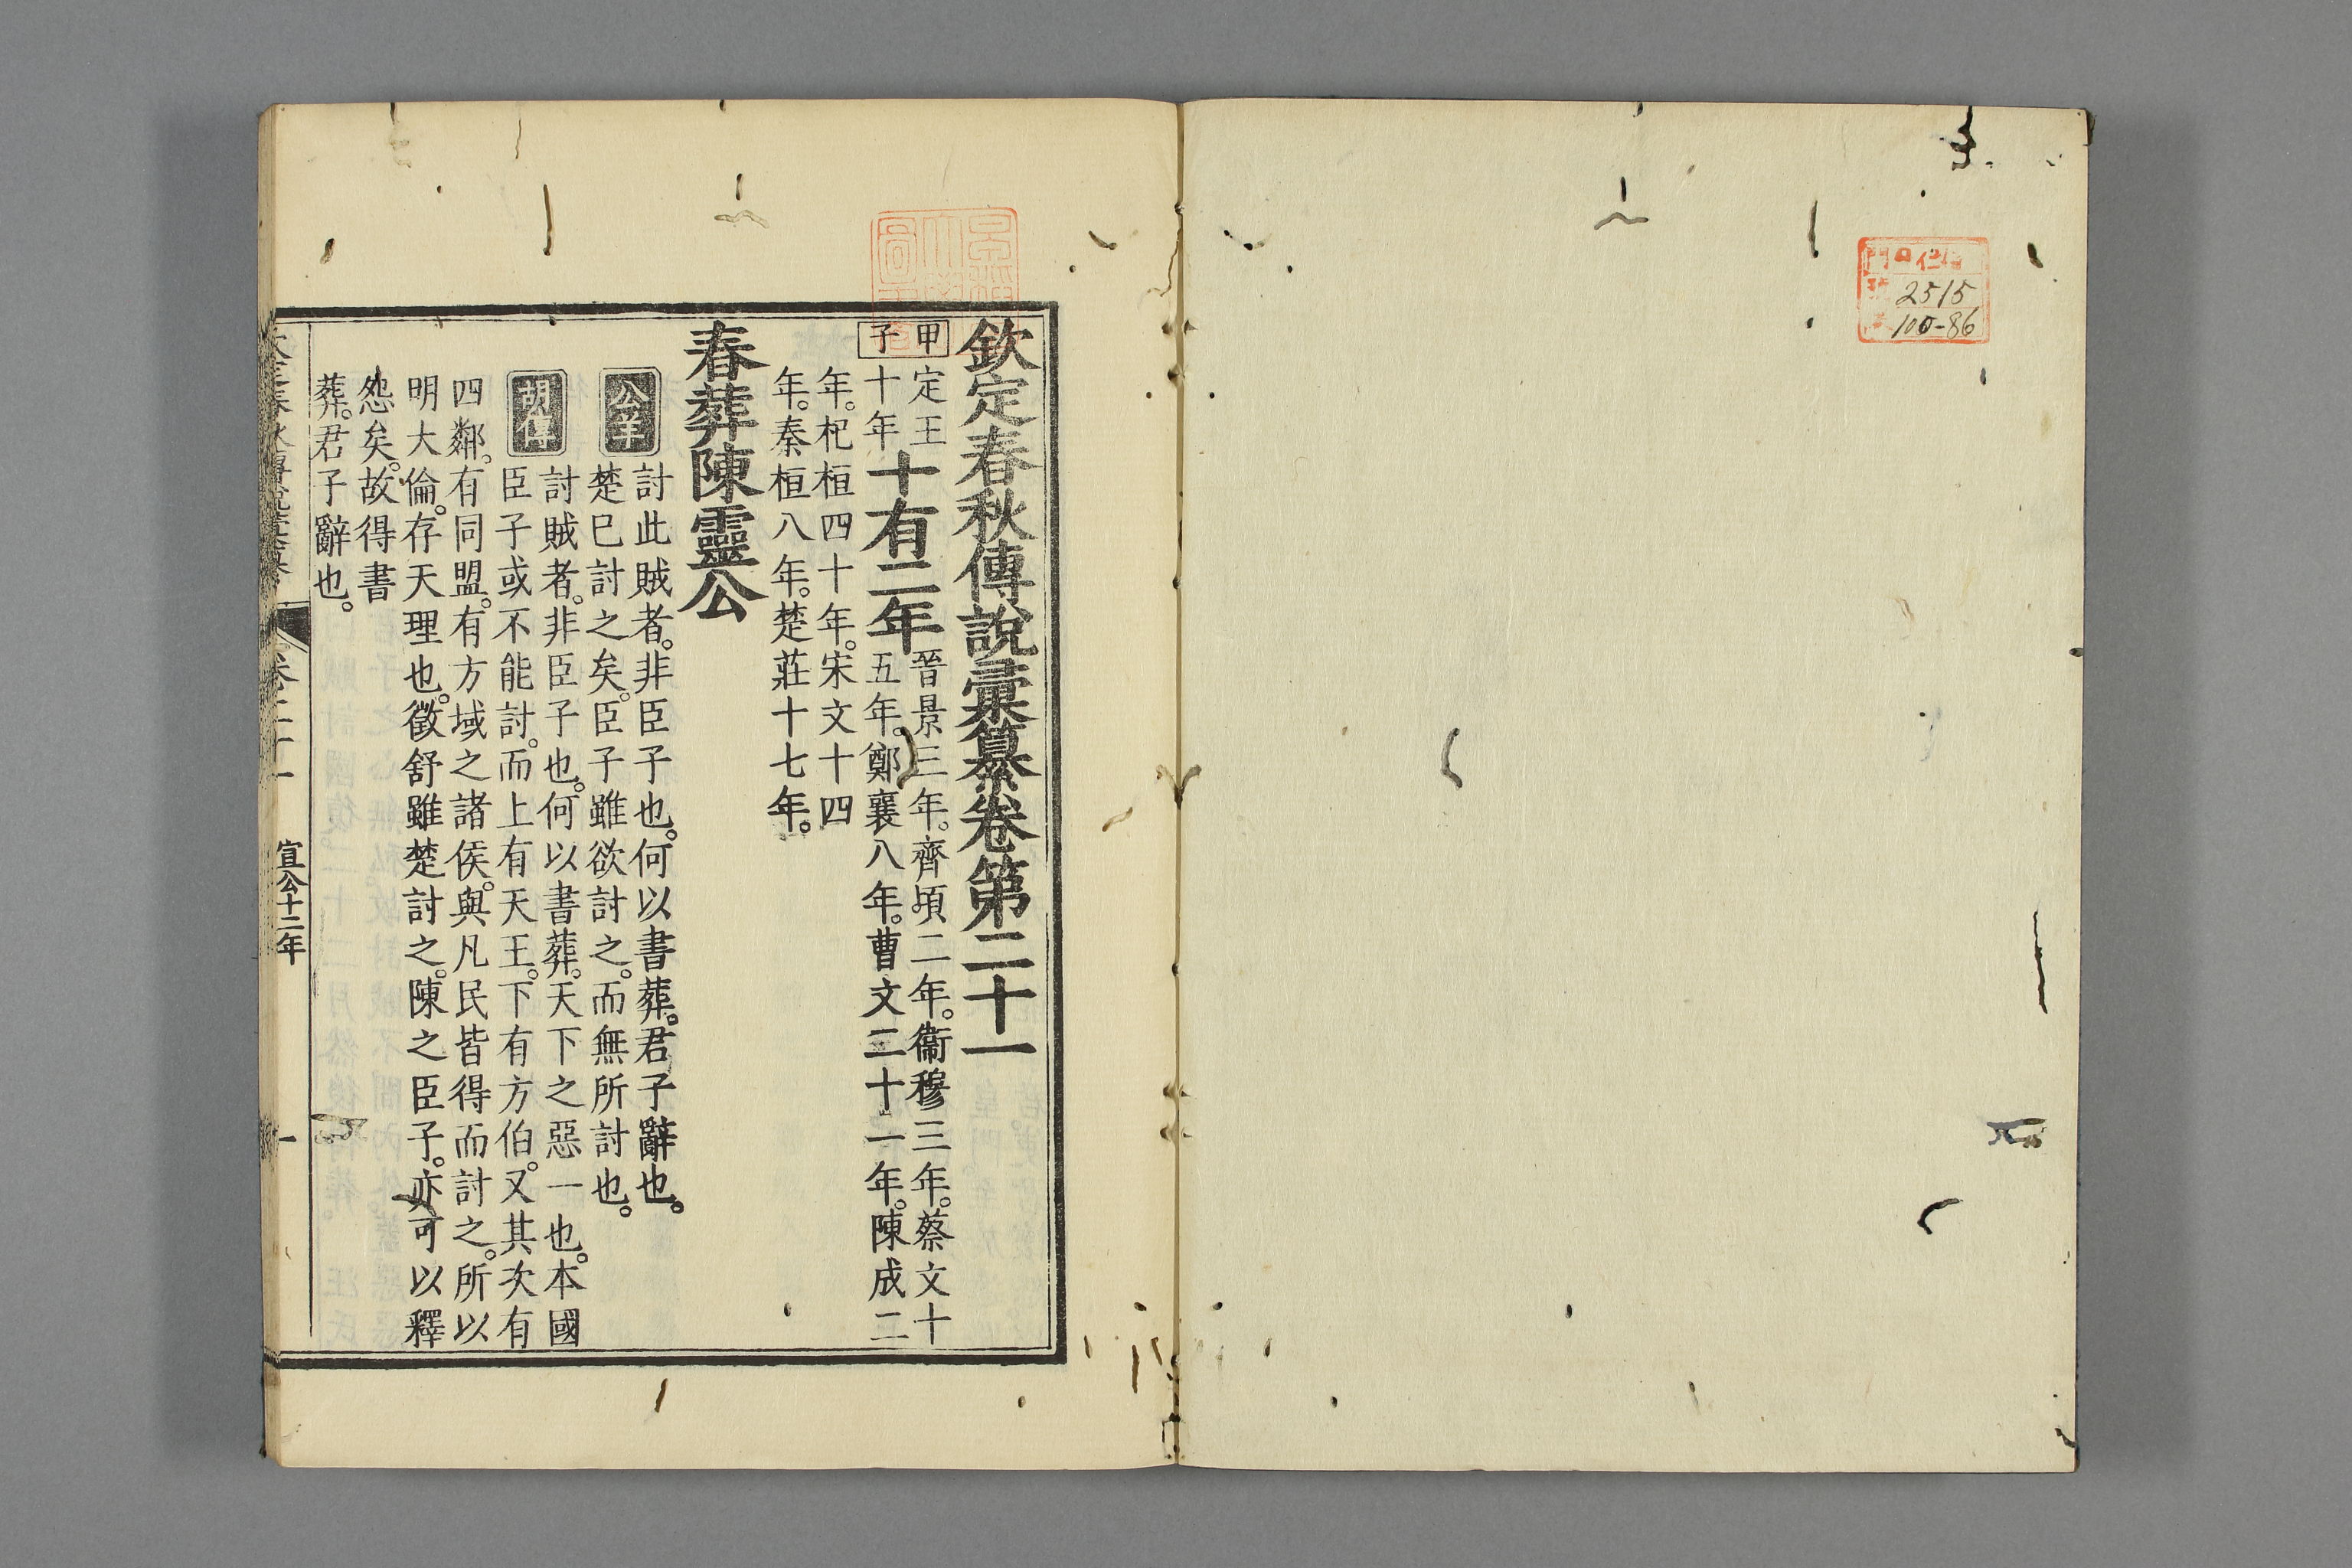 2515
100-86
欽定春秋傳說彙纂卷第二十一
甲子
定王十年
十有二年
晉景三年。齊頃二年。衞穆三年。蔡文十
五年。鄭襄八年。曹文二十一年。陳成二
年。杞桓四十年。宋文十四
年。秦桓八年。楚莊十七年。
春葬陳靈公
公羊
討此賊者。非臣子也。何以書葬。君子辭也。
楚已討之矣。臣子雖欲討之。而無所討也。
胡傳
討賊者。非臣子也。何以書葬。天下之惡一也。本國
臣子或不能討。而上有天王。下有方伯。又其次有
四鄰。有同盟。有方域之諸侯。與凡民皆得而討之。所以
明大倫。存天理也。徵舒雖楚討之。陳之臣子。亦可以釋
怨矣。故得書
葬。君子辭也。
卷二十一 宣公十二年 一